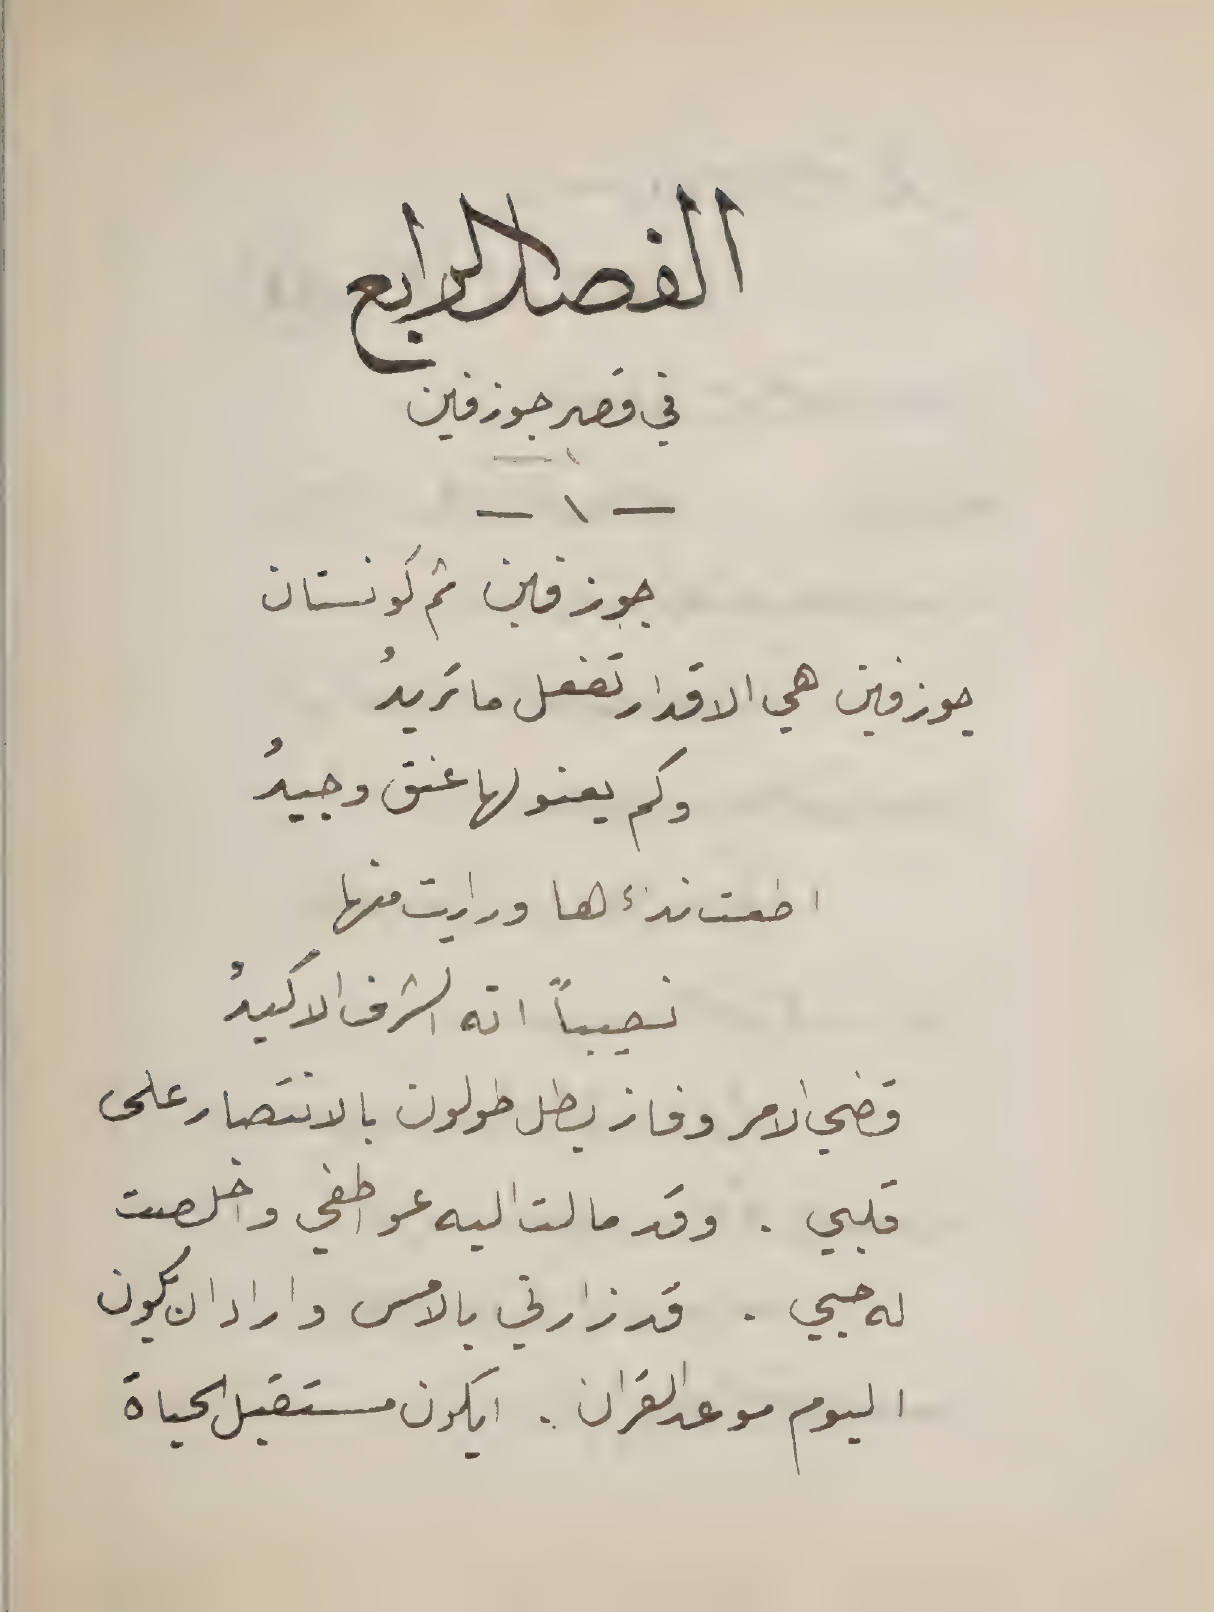 الفصل الرابع
في قصر جوزفين
— ١ —
جوزفين ثم كونستان
جوزفين هي الاقدار تفعل ما تريدُ
وكم يعنو لها عنق وجيدُ
اطعت نداءها ورايت منها
نصيباً انه الشرف الاكيدُ
قضي الامر وفاز بطل طولون بالانتصار على
قلبي . وقد مالت اليه عواطفي واخلصت
له حبي . قد زارني بالامس واراد ان يكون
اليوم موعد القران . ايكون مستقبل الحياة